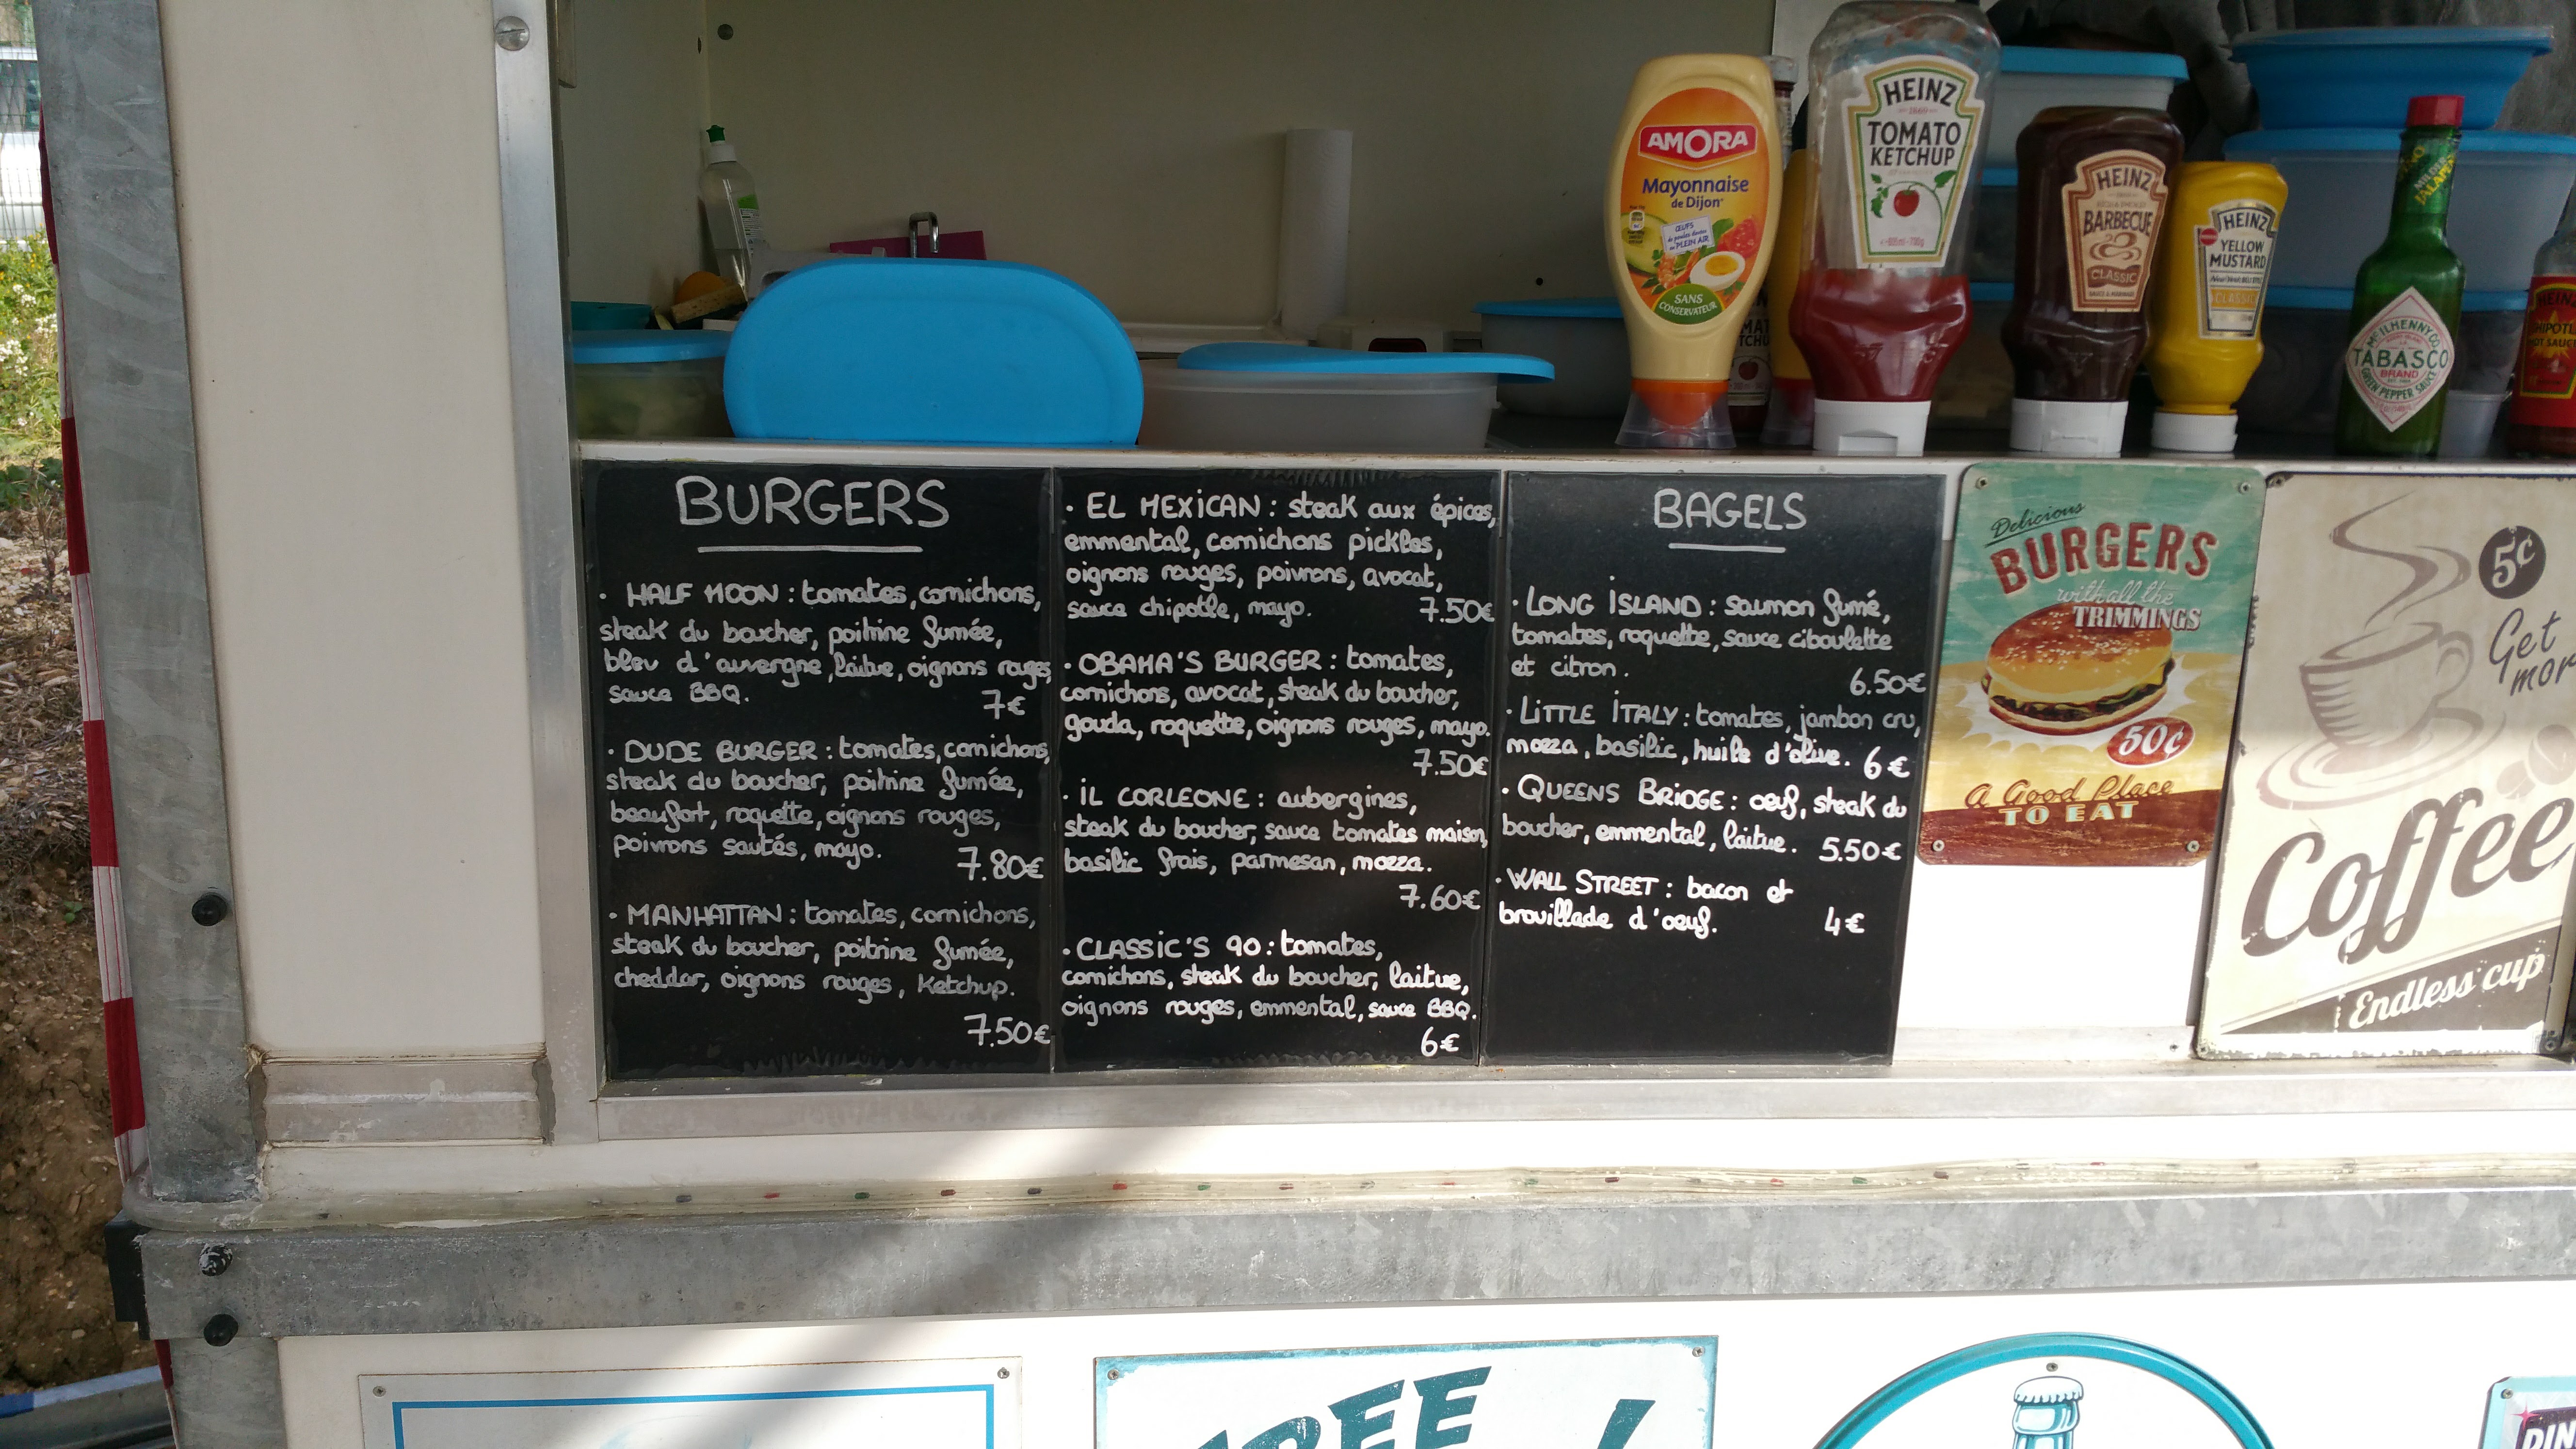 AMORA
Mayonnaise
de Dijon
ŒUFS
PLEIN AIR
SANS
CONSERVATEUR
HEINZ
TOMATO
KETCHUP
HEINZ
BARBECUE
CLASSIC
HEINZ
YELLOW
MUSTARD
CLASSIC
McILHENNY CO.
TABASCO
BRAND
GREEN PEPPER SAUCE
HEINZ
CHIPOTLE
HOT SAUCE
BURGERS
· HALF MOON : tomates, cornichons,
steak du boucher, poitrine fumée,
bleu d'auvergne, laitue, oignons rouges,
sauce BBQ.
7€
· DUDE BURGER : tomates, cornichons,
steak du boucher, poitrine fumée,
beaufort, roquette, oignons rouges,
poivrons sautés, mayo.
7.80€
· MANHATTAN : tomates, cornichons,
steak du boucher, poitrine fumée,
cheddar, oignons rouges, Ketchup.
7.50€
· EL MEXICAN : steak aux épices,
emmental, cornichons pickles,
oignons rouges, poivrons, avocat,
sauce chipotle, mayo. 7.50€
· OBAMA'S BURGER : tomates,
cornichons, avocat, steak du boucher,
gouda, roquette, oignons rouges, mayo.
7.50€
· IL CORLEONE : aubergines,
steak du boucher, sauce tomates maison,
basilic frais, parmesan, mozza.
7.60€
· CLASSIC'S 90 : tomates,
cornichons, steak du boucher, laitue,
oignons rouges, emmental, sauce BBQ.
6€
BAGELS
· LONG ISLAND : saumon fumé,
tomates, roquette, sauce ciboulette
et citron.
6.50€
· LITTLE ITALY : tomates, jambon cru,
mozza, basilic, huile d'olive. 6€
· QUEENS BRIDGE : oeuf, steak du
boucher, emmental, laitue. 5.50€
· WALL STREET : bacon et
brouillade d'oeuf. 4€
Delicious
BURGERS
with all the
TRIMMINGS
50¢
A Good Place
TO EAT
5¢
Get
mor
Coffee
Endless cup
FREE
!